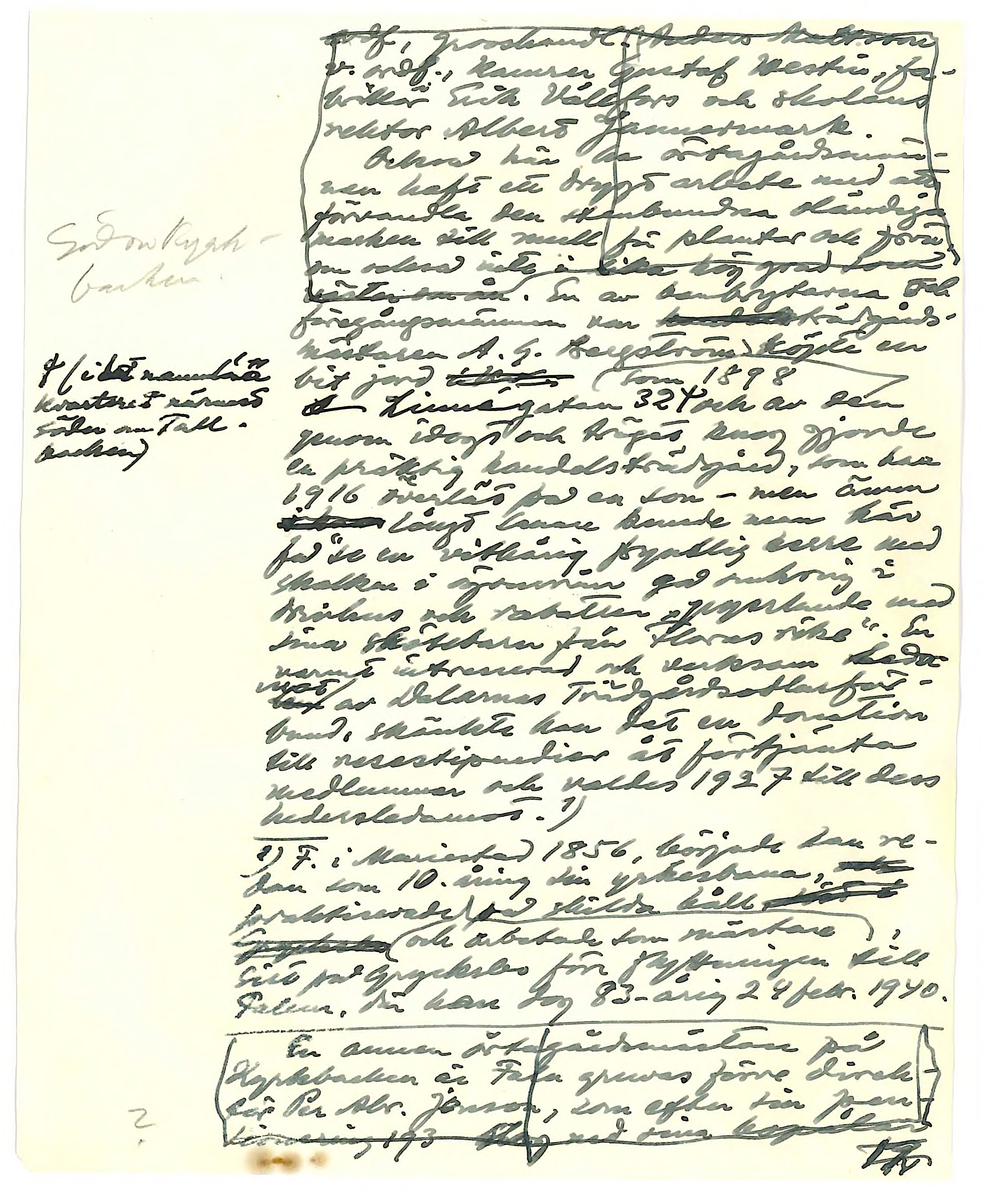 ordf., grosshandl. Anders Mattsson
v. ordf., kamrer Gustaf Westin, fa-
brikör Erik Vållfors och skolans
rektor Albert Gunnermark.
Också här ha örtagårdsmän-
nen haft ett drygt arbete med att
förvandla den stenbundna ständiga
marken till mull för plantor och frön
om också inte i lika hög grad som
väster om ån. En av banbrytarna och
föregångsmännen var trädgårds-
mästaren A. G. Bergström köpte en
bit jord (som 1898
Linnégatan 32 och av den
genom idogt och träget knog gjorde
en präktig handelsträdgård, som han
1916 överlät på en son – men ännu
långt senare kunde man här
få se en vithårig fryntlig herre med
skalken i ögonvrån gå omkring i
drivhus och rabatter "pysslande med
sina skötebarn från Floras rike". En
varmt intresserad och verksam leda-
mot av Dalarnas Trädgårdsodlarför-
bund, skänkte han det en donation
till resestipendier åt förtjänta
medlemmar och valdes 1937 till dess
hedersledamot. 1)
1) F. i Mariestad 1856, började han re-
dan som 10-åring sin yrkesbana,
praktiserade på skilda håll
(och arbetade som mästare),
sist på Grycksbo före flyttningen till
Falun, där han dog 83-årig 24 febr. 1940.
En annan örtagårdsmästare på
Kyrkbacken är Falu gruvas förre direk-
tör Per Abr. Jonson, som efter sin pen-
sionering 193 med sina
Söd om Kyrk-
backen
(i det namnlösa
kvarteret närmast
söder om Tall-
backen)
?